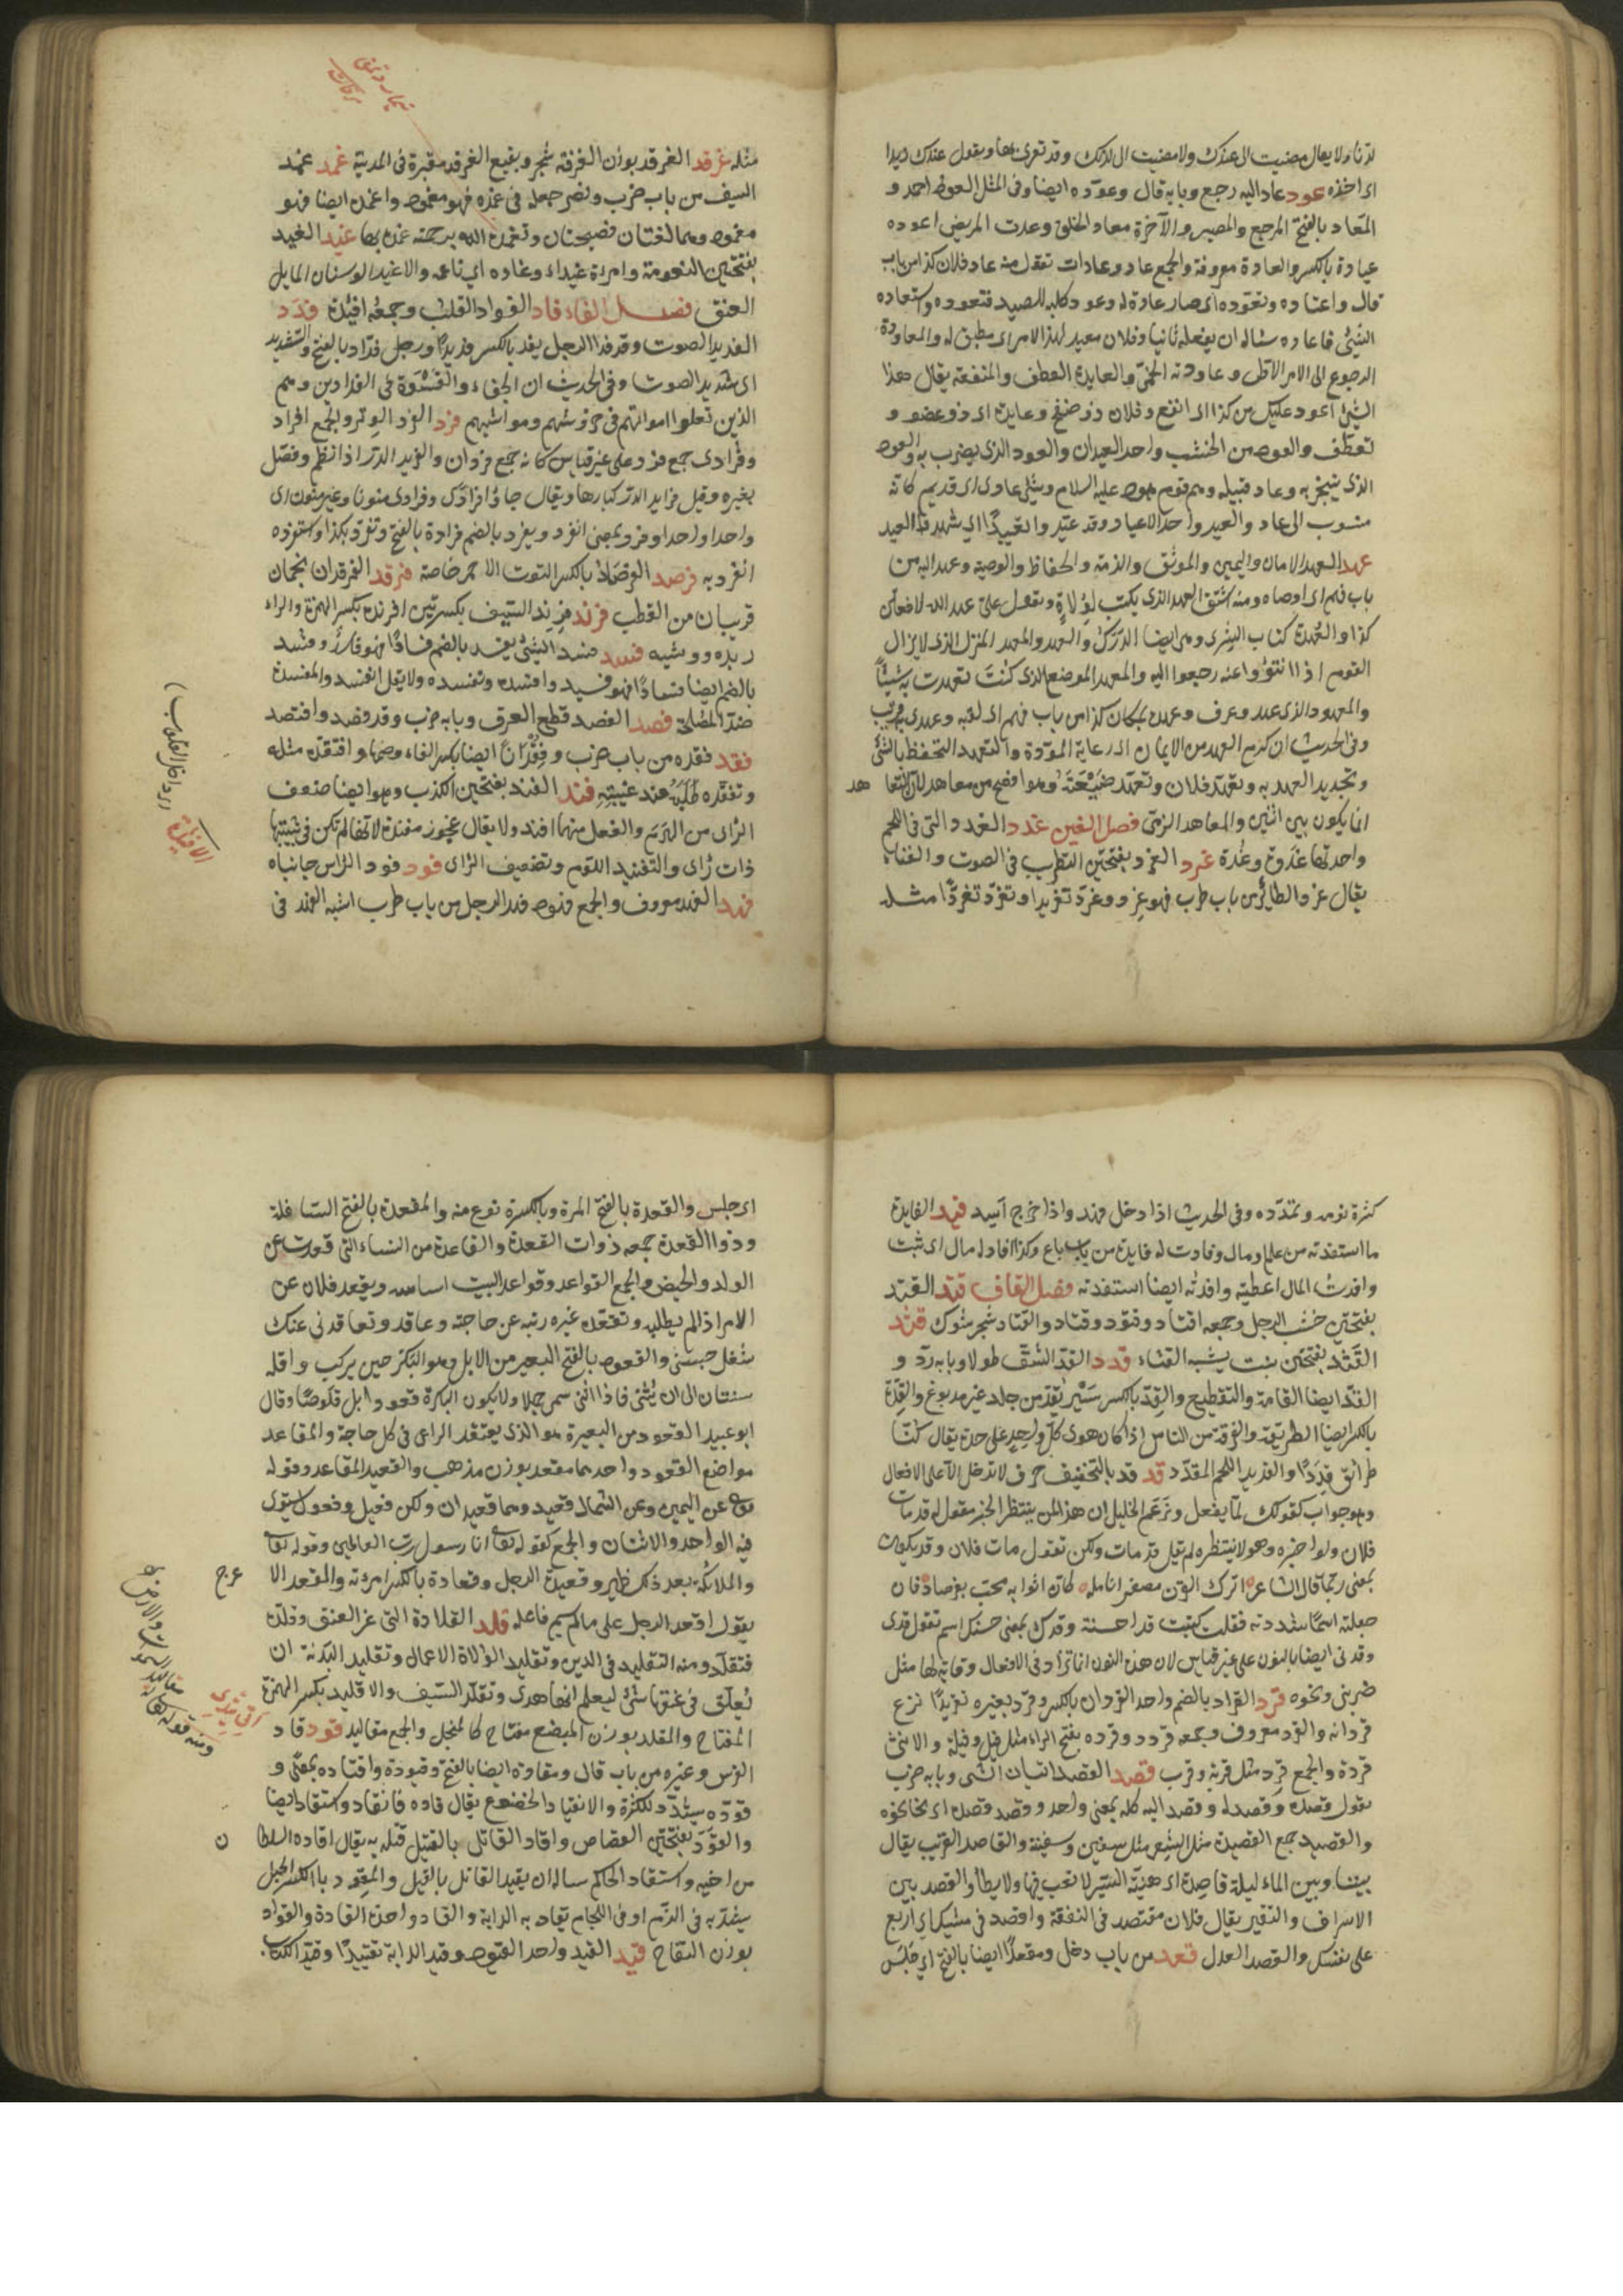 لدنا ولا يقال مضيت الى عندك ولا مضيت الى لدنك وقد تغرى بها ويقول عندك زيدا
اى اخذه عود عاد اليه رجع وبابه قال وعوده ايضا وفى المثل العود احمد و
المعاد بالفتح المرجع والمصير والآخرة معاد الخلق وعدت المريض اعوده
عيادة بالكسر والعادة معروفة والجمع عاد وعادات تقول منه عاد فلان كذا من باب
قال واعتاده وتعوده اى صار عادة له وعود كلبه الصيد فتعوده واستعاده
الشئ فاعاده سأله ان يفعله ثانيا وفلان معيد لهذا الامر اى مطيق له والمعاودة
الرجوع الى الامر الاول وعاودته الحمى والعايدة العطف والمنفعة يقال هذا
الشئ اعود عليك من كذا اى انفع وفلان ذو صفح وعايدة اى ذو عفو و
تعطف والعود من الخشب واحد العيدان والعود الذى يضرب به والعود
الذى يتبخر به وعاد قبيلة وهم قوم هود عليه السلام وشئ عادى اى قديم كانه
منسوب الى عاد والعيد واحد الاعياد وقد عيدوا تعييدا اى شهدوا العيد
عهد العهد الامان واليمين والموثق والذمة والحفاظ والوصية وعهد اليه من
باب فهم اى اوصاه ومنه اشتق العهد الذى يكتب لولاة وتقول على عهد الله لافعلن
كذا والعهدة كتاب الشرى وهى ايضا الدرك والعهد والمعهد المنزل الذى لا يزال
القوم اذا انتووا عنه رجعوا اليه والمعهد الموضع الذى كنت تعهدت به شيئا
والمعهود الذى عهد وعرف وعهده بمكان كذا من باب فهم اى لقيه وعهدى به قريب
وفى الحديث ان كرم العهد من الايمان اى رعاية المودة والتعهد التحفظ بالشئ
وتجديد العهد به وتعهد فلان وتعهد ضيعته وهو افصح من تعاهد لان التعا هد
انما يكون بين اثنين والمعاهد الذمى فصل الغين غدد الغدد التى فى اللحم
واحدتها غددة وغدة غرد الغرد بفتحتين التطريب فى الصوت والغناء
يقال غرد الطائر من باب طرب فهو غرد وغرد تغريدا وتغرد تغردا مثله
مثله غرقد الغرقد بوزن الغرفة شجر وبقيع الغرقد مقبرة فى المدينة غمد غمد
السيف من باب ضرب ونصر جعله فى غمده فهو مغمود واغمده ايضا فهو
مغمود وهما لغتان فصيحتان وتغمده الله برحمته غمده بها غيد الغيد
بفتحتين النعومة وامرأة غيداء وغاده اى ناعمة والاغيد الوسنان المايل
العنق فصل الفاء فاد الفواد القلب وجمعه افئدة فدد
الفديد الصوت وقد فد الرجل يفد بالكسر فديدا ورجل فداد بالفتح والتشديد
اى شديد الصوت وفى الحديث ان الجفاء والقسوة فى الفدادين وهم
الذين تعلوا اصواتهم فى حروثهم ومواشيهم فرد الفرد الوتر والجمع افراد
وفرادى جمع فرد على غير قياس كانه جمع فردان والفريد الدر اذا نظم وفصل
بغيره وقيل فرايد الدر كبارها ويقال جاؤا فرادى وفرادى منونا وغير منون اى
واحدا واحدا وفرد بمعنى انفرد ويفرد بالضم فرادة بالفتح وتفرد بكذا واستفرده
انفرد به فرصد الفرصاد بالكسر التوت الاحمر خاصة فرقد الفرقدان نجمان
قريبان من القطب فرند فرند السيف بكسرتين افرنده بكسر الهمزة والراء
ربده ووشيه فسد فسد الشئ يفسد بالضم فسادا فهو فاسد وفسد
بالضم ايضا فسادا فهو فسيد وافسده وتفسده ولا يقل انفسد والمفسدة
ضد المصلحة فصد الفصد قطع العرق وبابه ضرب وقد فصد وافتصد
فقد فقده من باب ضرب وفقدانا ايضا بكسر الفاء وضمها وافتقده مثله
وتفقده طلبه عند غيبته فند الفند بفتحتين الكذب وهو ايضا ضعف
الراى من الهرم والفعل منهما افند ولا يقال عجوز مفندة لانها لم تكن فى شبيبتها
ذات رأى والتفنيد اللوم وتضعيف الراى فود فود الراس جانباه
فهد الفهد معروف والجمع فهود فهد الرجل من باب طرب اشبه الفهد فى
كثرة نومه وتمدده وفى الحديث اذا دخل فهد واذا خرج اسد فيد الفايدة
ما استفدته من علم او مال وفادت له فايدة من باب باع وكذا افاد له مال اى ثبت
وافدت المال اعطيته وافدته ايضا استفدته فصل القاف قتد القتد
بفتحتين خشب الرحل وجمعه اقتاد وقتود وقتاد والقتاد شجر شوك قثد
القثد بفتحتين نبت يشبه القثاء قدد القد الشق طولا وبابه رد و
القد ايضا القامة والتقطيع والقد بالكسر سير يقد من جلد غير مدبوغ والقدة
بالكسر ايضا الطريقة والفرقة من الناس اذا كان هوى كل واحد على حدة يقال كنا
طرائق قددا والقديد اللحم المقدد قد قد بالتخفيف حرف لا تدخل الا على الافعال
وهو جواب كقولك لما يفعل وزعم الخليل ان هذا لمن ينتظر الخبر مقول له قد مات
فلان ولو اخبره وهو لا ينتظره لم يقل قد مات ولكن تقول مات فلان وقد يكون
بمعنى ربما قال الشاعر اترك القرن مصفرا انامله كان اثوابه مجت بفرصاد فان
جعلته اسما شددته فقلت كتبت قدا حسنة وقدك بمعنى حسبك اسم تقول قدى
وقدنى ايضا بالنون على غير قياس لان هذه النون انما تزاد فى الافعال وقاية لها مثل
ضربنى ونحوه قرد القراد بالضم واحد القردان بالكسر وقرد بعيره تقريدا نزع
قردانه والقرد معروف وجمعه قرود وقرده بفتح الراء مثل فيل وفيلة والانثى
قردة والجمع قرد مثل قربة وقرب قصد القصد اتيان الشى وبابه ضرب
تقول قصده وقصد له وقصد اليه كله بمعنى واحد وقصد قصده اى نحا نحوه
والقصيد جمع القصيدة مثل الشعر مثل سفين وسفينة والقاصد القريب يقال
بيننا وبين الماء ليلة قاصدة اى هينة السير لا تعب فيها ولا بطأ والقصد بين
الاسراف والتقتير يقال فلان مقتصد فى النفقة واقصد فى مشيك اى اربع
على نفسك والقصد العدل قعد من باب دخل ومقعدا ايضا بالفتح اى جلس
اى جلس والقعدة بالفتح المرة وبالكسرة نوع منه والمقعدة بالفتح السافلة
وذو القعدة جمعه ذوات القعدة والقاعدة من النساء التى قعدت عن
الولد والحيض والجمع القواعد وقواعد البيت اساسه وتقعد فلان عن
الامر اذا لم يطلبه وتقعده غيره ربثه عن حاجته وعاقه وتعاقدنى عنك
شغل حبسنى والقعود بالفتح البعير من الابل وهو البكر حين يركب واقله
سنتان الى ان يثنى فاذا اثنى سمى جملا ولا يكون البكرة قعودا بل قلوصا وقال
ابو عبيد القعود من البعيرة هو الذى يعتقد الراعى فى كل حاجة والمقاعد
مواضع القعود واحدها مقعد بوزن مذهب والقعيد المقاعد وقوله
تع عن اليمين وعن الشمال قعيد وهما قعيدان ولكن فعيل وفعول يستوى
فيه الواحد والاثنان والجمع كقوله تعا انا رسول رب العالمين وقوله تعا
والملائكة بعد ذلك ظهير وقعيدة الرجل وقعادة بالكسر امرئته والمقعد الا عرج
يقول اقعد الرجل على ما لم يسم فاعله قلد القلادة التى غز العنق وقلده
فتقلد ومنه التقليد فى الدين وتقليد الولاة الاعمال وتقليد البدنة ان
يعلق فى عنقها شئ ليعلم انها هدى وتقلد السيف والاقليد بكسر الهمزة
المفتاح والمقلد بوزن المبضع مفتاح كالمنجل والجمع مقاليد قود قاد
الفرس وغيره من باب قال ومقاودة ايضا بالفتح وقيودة واقتاده بمعنى و
قوده شدد للكثرة والانقياد الخضوع يقال قاده فانقاد واستقاد ايضا
والقود بفتحتين القصاص واقاد القاتل بالقتيل قتله به يقال اقاده السلطا ن
من اخيه واستقاد الحاكم ساله ان يقيد القاتل بالقتيل والمقود بالكسر الحبل
يشد به فى الزم او فى اللجام تقاد به الدابة والقاد واحدة القادة والقواد
بوزن التفاح قيد القيد واحد القيود وقيد الدابة تقييدا وقيد الكتاب